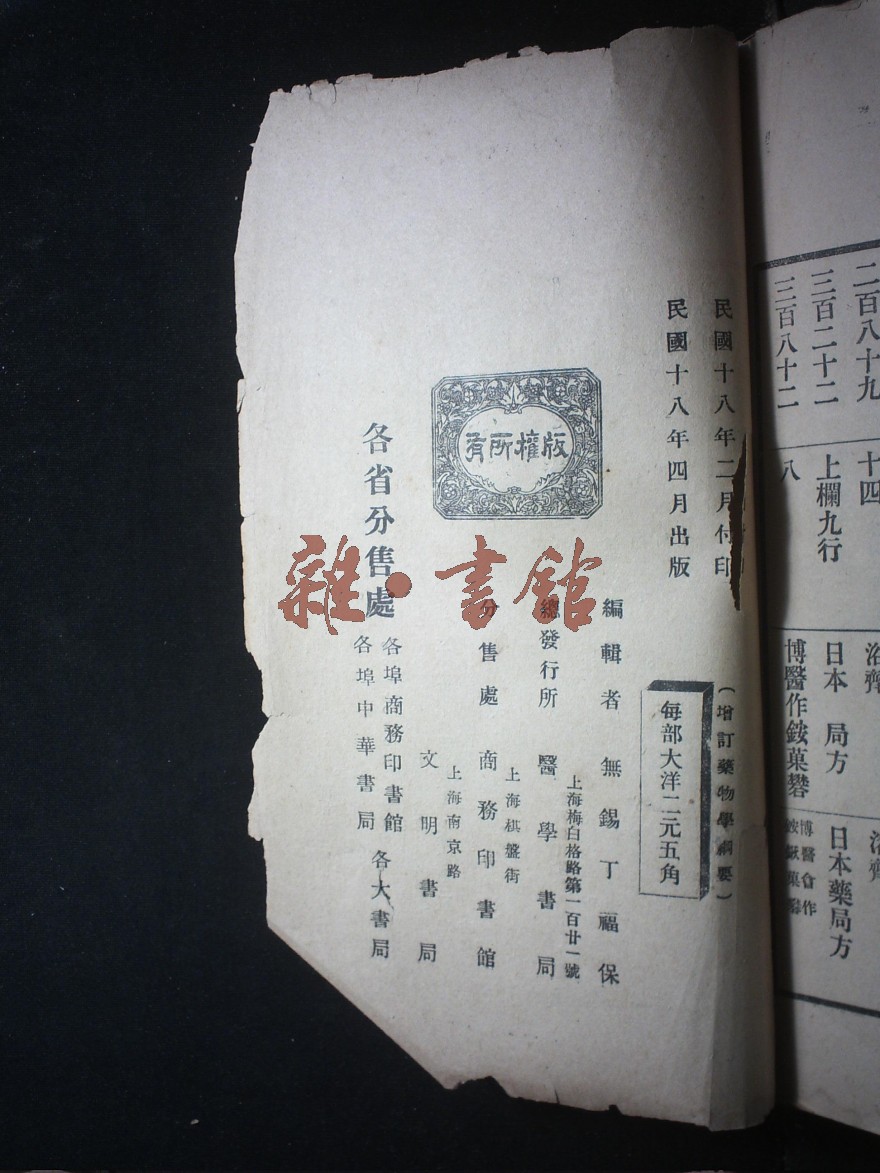 二百八十九
十四
三百二十二
上欄九行
日本　局方
日本藥局方
三百八十二
八
博醫作銨菓礬
博醫會作
民國十八年二月付印
（增訂藥物學綱要）
民國十八年四月出版
每部大洋二元五角
編輯者　無錫丁福保
上海梅白格路第一百廿一號
總發行所　醫學書局
版權所有
上海棋盤街
分售處　商務印書館
上海南京路
文明書局
各省分售處
各埠商務印書館
各埠中華書局
各大書局
雜·書館